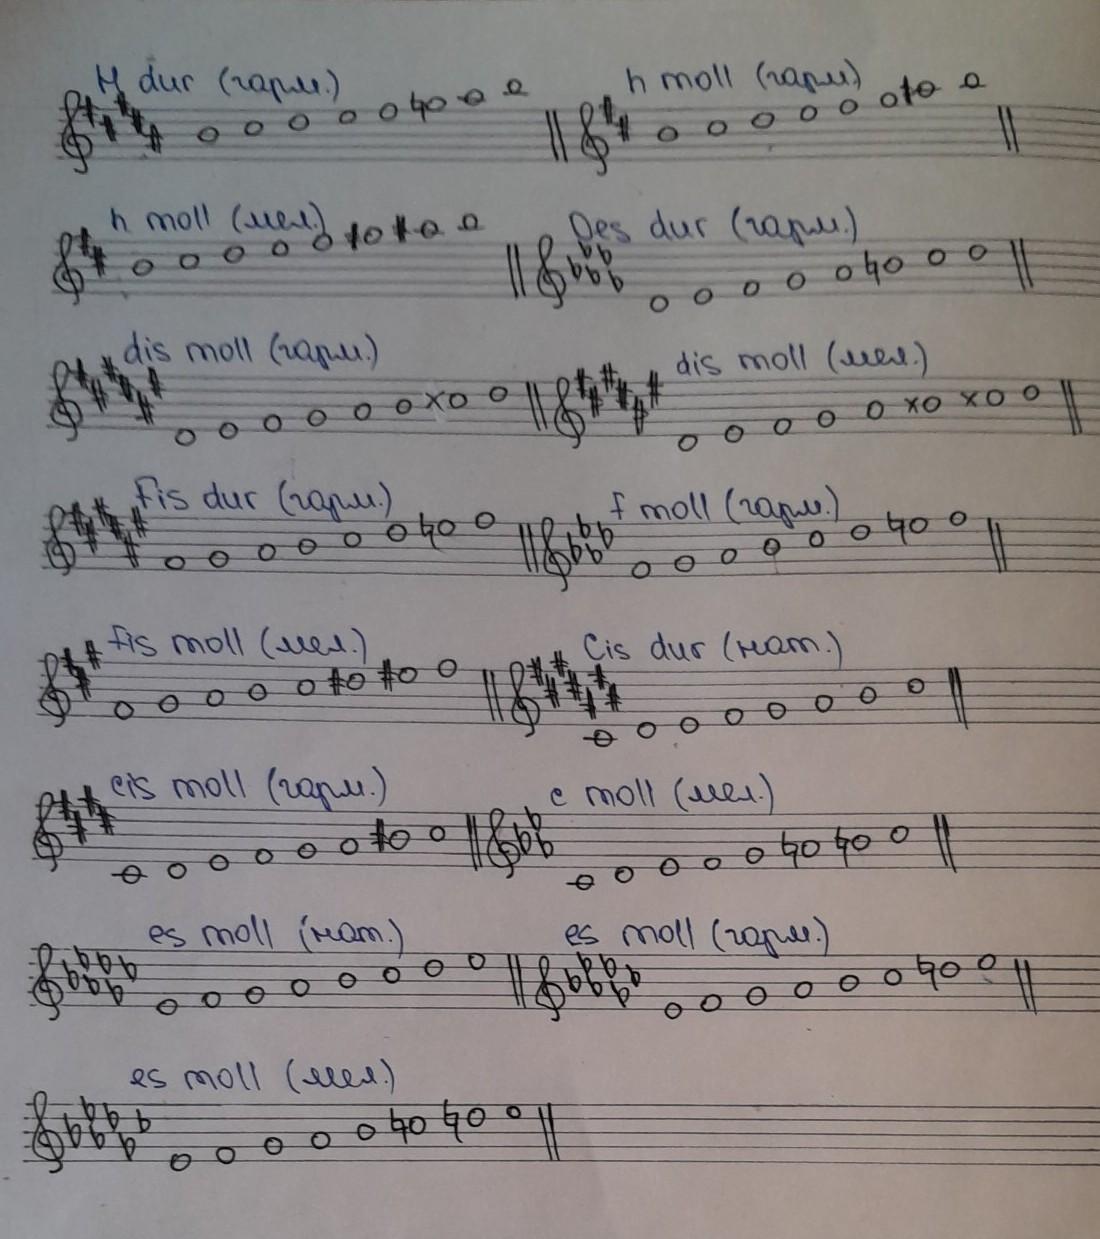 H dur (гарм.) h moll (гарм)
h moll (мел.) Des dur (гарм.)
dis moll (гарм.) dis moll (мел.)
Fis dur (гарм.) f moll (гарм.)
fis moll (мел.) Cis dur (нат.)
cis moll (гарм.) c moll (мел.)
es moll (нат.) es moll (гарм.)
es moll (мел.)